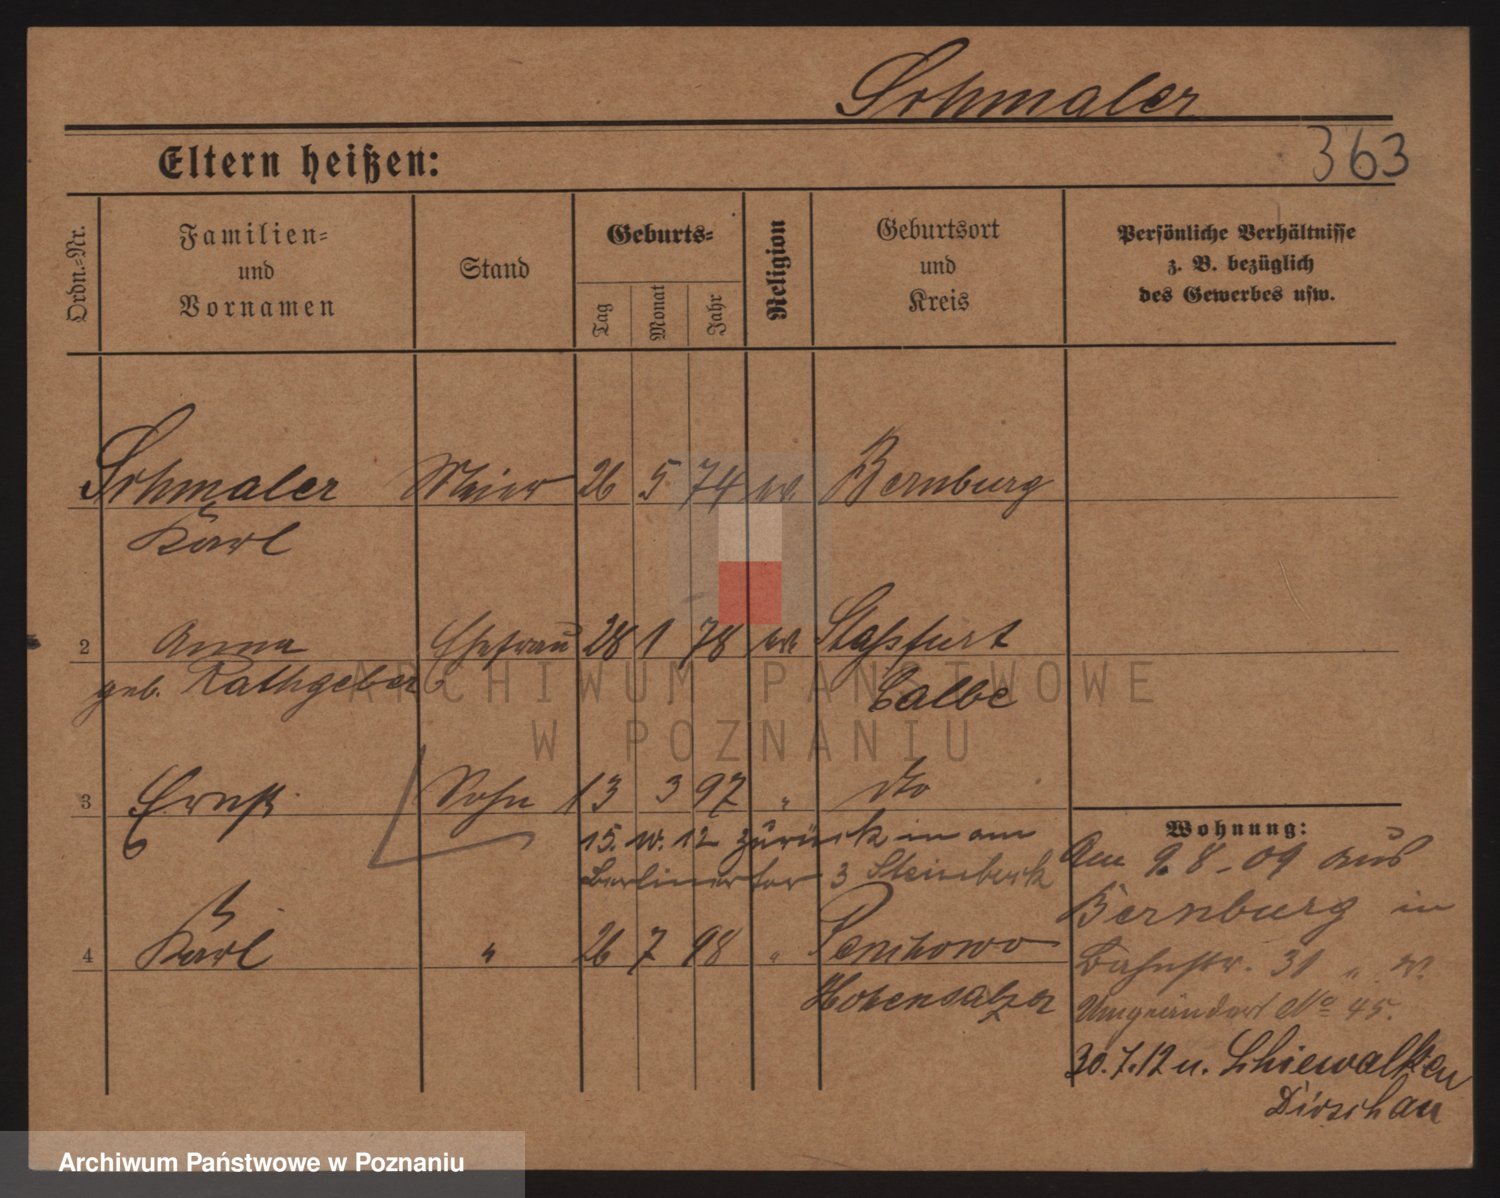 Schmaler
363
Eltern heißen:
Ordn.=Nr.
Familien=
und
Vornamen
Stand
Geburts=
Tag
Monat
Jahr
Religion
Geburtsort
und
Kreis
Persönliche Verhältnisse
z. B. bezüglich
des Gewerbes usw.
Schmaler 26 5 74 ev. Bernburg
Karl
2 Anna Ehefrau 28 1 78 ev. Staßfurt
geb. Rathgeber Calbe
3 Ernst Sohn 13 3 97 " dto
15. 12 zurück
3 Steinbeck
4 Karl " 26 7 98 "
Hohensalza
Wohnung:
Am 9.8.09 aus
Bernburg in
Bahnstr. 31
Umgeändert No 45.
30.7.12 n.
Dirschau
ARCHIWUM PAŃSTWOWE
W POZNANIU
Archiwum Państwowe w Poznaniu